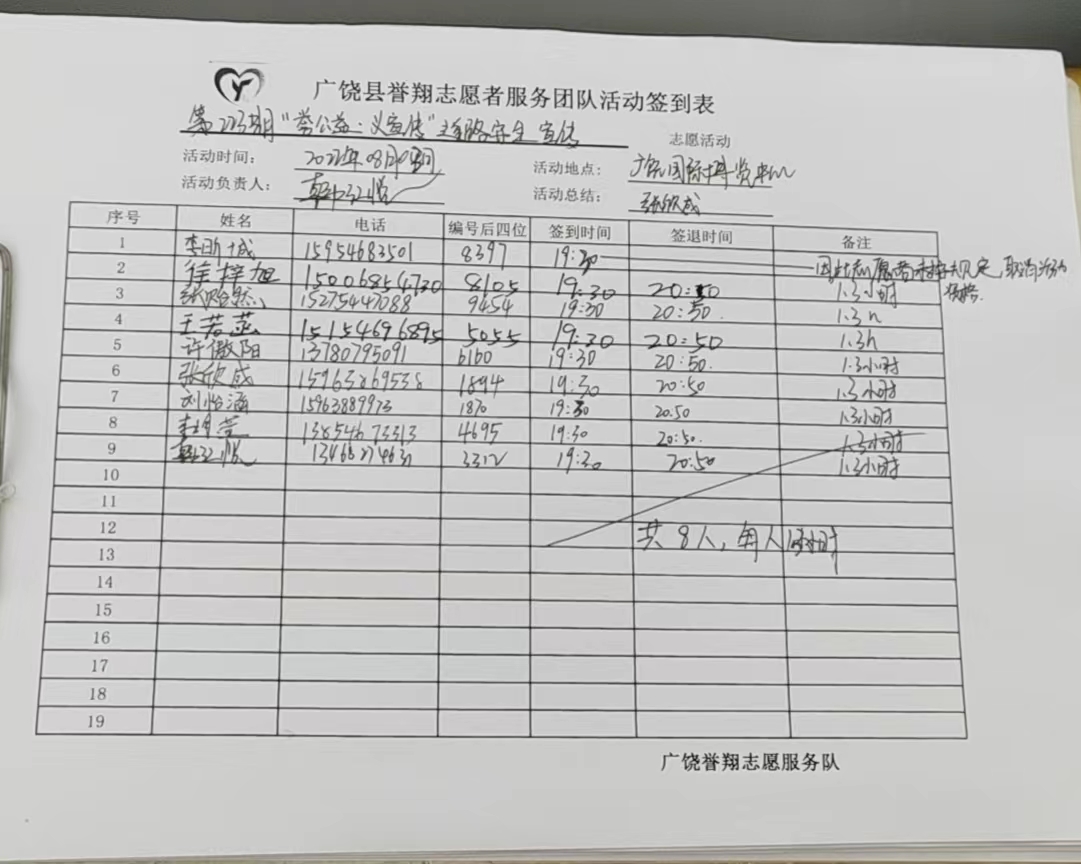 广饶县誉翔志愿者服务团队活动签到表
第223期"公益:义宣传"道路安全宣传 志愿活动
活动时间: 2022年08月 日 活动地点: 广饶国际博览中心
活动负责人: 韩江悦 活动总结: 张欣成
序号 姓名 电话 编号后四位 签到时间 签退时间 备注
1 李昕城 15954683501 8397 19:30 因此志愿者未按规定,取消活动资格.
2 徐梓旭 15006854730 8105 19:30 20:50 1.3小时
3 张贻然 15275447088 9454 19:30 20:50. 1.3h
4 王若菡 15154696895 5055 19:30 20:50 1.3h
5 许傲阳 13780795091 6160 19:30 20:50. 1.3小时
6 张欣成 15963869538 1894 19:30 20:50 1.3小时
7 刘怡涵 15963889973 1870 19:30 20:50 1.3小时
8 李 莹 13854673313 4695 19:30 20:50. 1.3小时
9 韩江悦 3312 19:30 20:50 1.3小时
10
11
12 共8人,每人 小时
13
14
15
16
17
18
19
广饶誉翔志愿服务队